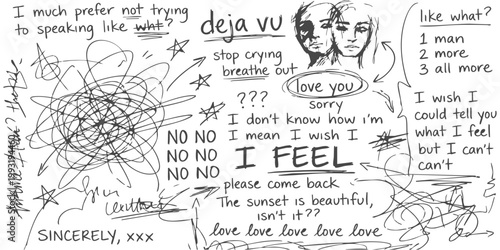 I much prefer not trying
to speaking like wht?
deja vu
stop crying
breathe out
love you
sorry
???
I don't know how i'm
I mean I wish I
NO NO
NO NO
NO NO
I FEEL
please come back
The sunset is beautiful,
isn't it??
love love love love love love
SINCERELY, xxx
like what?
1 man
2 more
3 all more
I wish I
could tell you
what I feel
but I can't
can't
Adobe Stock | 1893194460